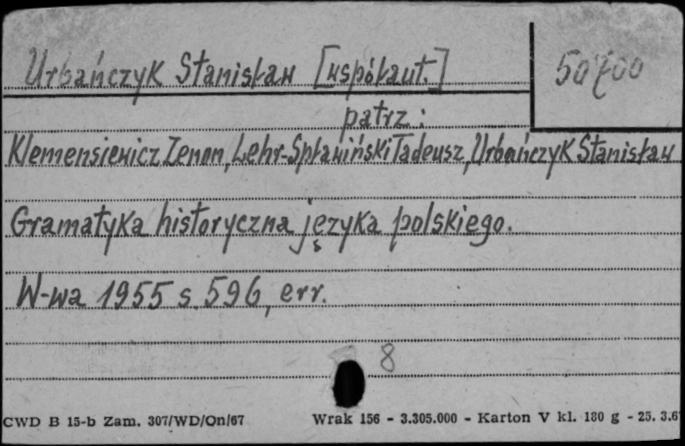 Urbańczyk Stanisław [współaut.]
50700
patrz:
Klemensiewicz Zenon, Lehr-Spławiński Tadeusz, Urbańczyk Stanisław
Gramatyka historyczna języka polskiego.
W-wa 1955 s. 596, err.
8
CWD B 15-b Zam. 307/WD/On/67 Wrak 156 - 3.305.000 - Karton V kl. 180 g - 25. 3.6